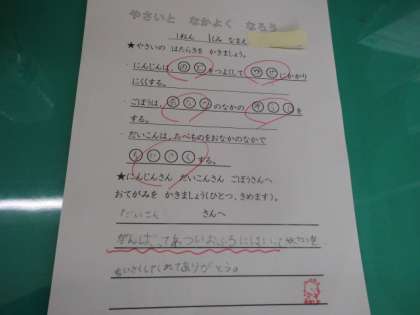 やさいと なかよく なろう
1ねん 1くみ なまえ
★やさいの はたらきを かきましょう。
・にんじんは、のどをつよくして かぜにかかり
にくくする。
・ごぼうは、おなかのなかの そうじを
する。
・だいこんは、たべものをおなかのなかで
ちいさくする。
★にんじんさん だいこんさん ごぼうさんへ
おてがみを かきましょう(ひとつ、きめます)。
だいこん さんへ
がんばって
ちいさくしてくれてありがとう。